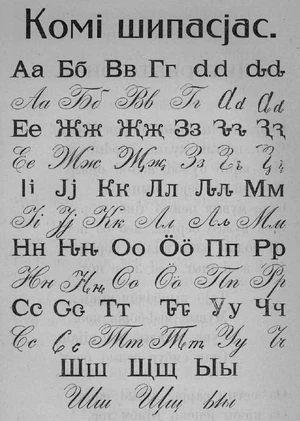 Комі шипасјас.
Аа Бб Вв Гг Ԁԁ Ԃԃ
Аа Бб Вв Гг Ԁԁ Ԃԃ
Ее Жж Җҗ Зз Ԅԅ Ԇԇ
Ее Жж Җҗ Зз Ԅԅ Ԇԇ
Іі Јј Кк Лл Ԉԉ Мм
Іі Јј Кк Лл Ԉԉ Мм
Нн Ԋԋ Оо Ӧӧ Пп Рр
Нн Ԋԋ Оо Ӧӧ Пп Рр
Сс Ԍԍ Тт Ԏԏ Уу Чч
Сс Ԍԍ Тт Ԏԏ Уу Чч
Шш Щщ Ыы
Шш Щщ Ыы